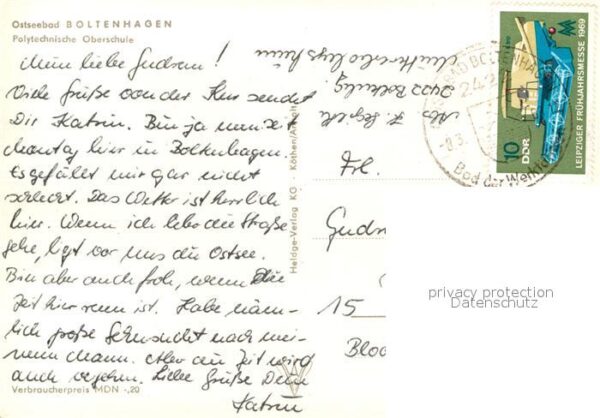 Ostseebad BOLTENHAGEN
Polytechnische Oberschule
Mein liebe Gudrun!
Viele Grüße von der Kur sendet
Dir Katrin. Bin ja nun seit
Montag hier in Boltenhagen.
Es gefällt mir gar nicht
schlecht. Das Wetter ist herrlich
hier. Wenn ich über die Straße
gehe, liegt vor uns die Ostsee.
Bin aber auch froh, wenn die
Zeit hier rum ist. Habe näm-
lich große Sehnsucht nach mei-
nem Mann. Aber die Zeit wird
auch vergehen. Liebe Grüße Deine
Katrin
Verbraucherpreis MDN -,20
Heldge-Verlag KG Köthen/Anhalt
2422
Abs. K.
Frl.
Gudr
15
Bloc
OSTSEEBAD BOLTENHAGEN
242
Bad der Werktätigen
10
DDR
LEIPZIGER FRÜHJAHRSMESSE 1969
privacy protection
Datenschutz